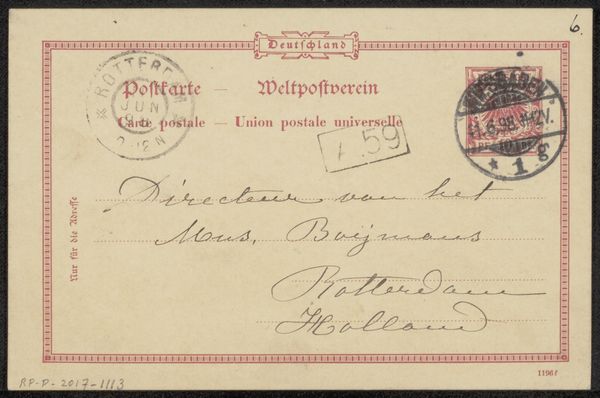 6.
Deutschland
Postkarte — Weltpostverein
Carte postale — Union postale universelle
ROTTERDAM
JUN
98
WIESBADEN
11.6.98.11-12V.
* 1 g
59
Nur für die Adresse
Directeur van het
Mus. Boijmans
Rotterdam
Holland
1196f
RP-P-2017-1113